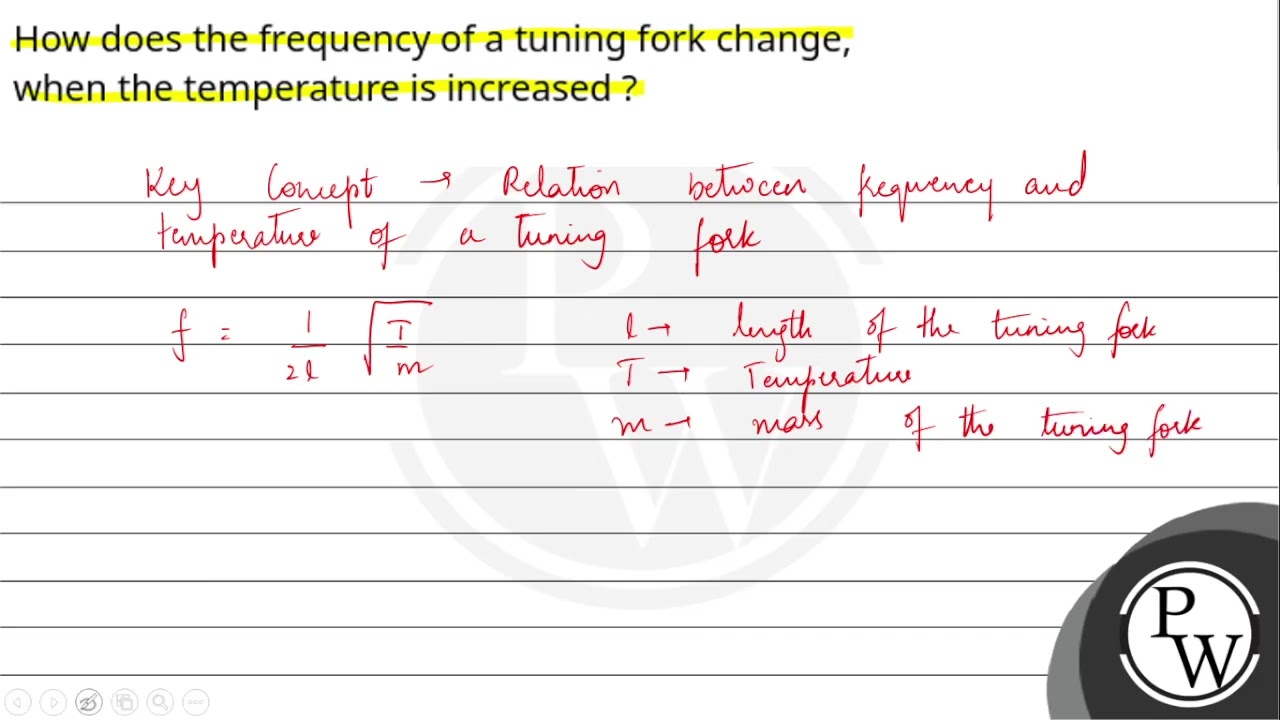 How does the frequency of a tuning fork change,
when the temperature is increased ?
Key Concept → Relation between frequency and
temperature of a tuning fork
f = 1/2l √T/m
l → length of the tuning fork
T → Temperature
m → mass of the tuning fork
PW
PW